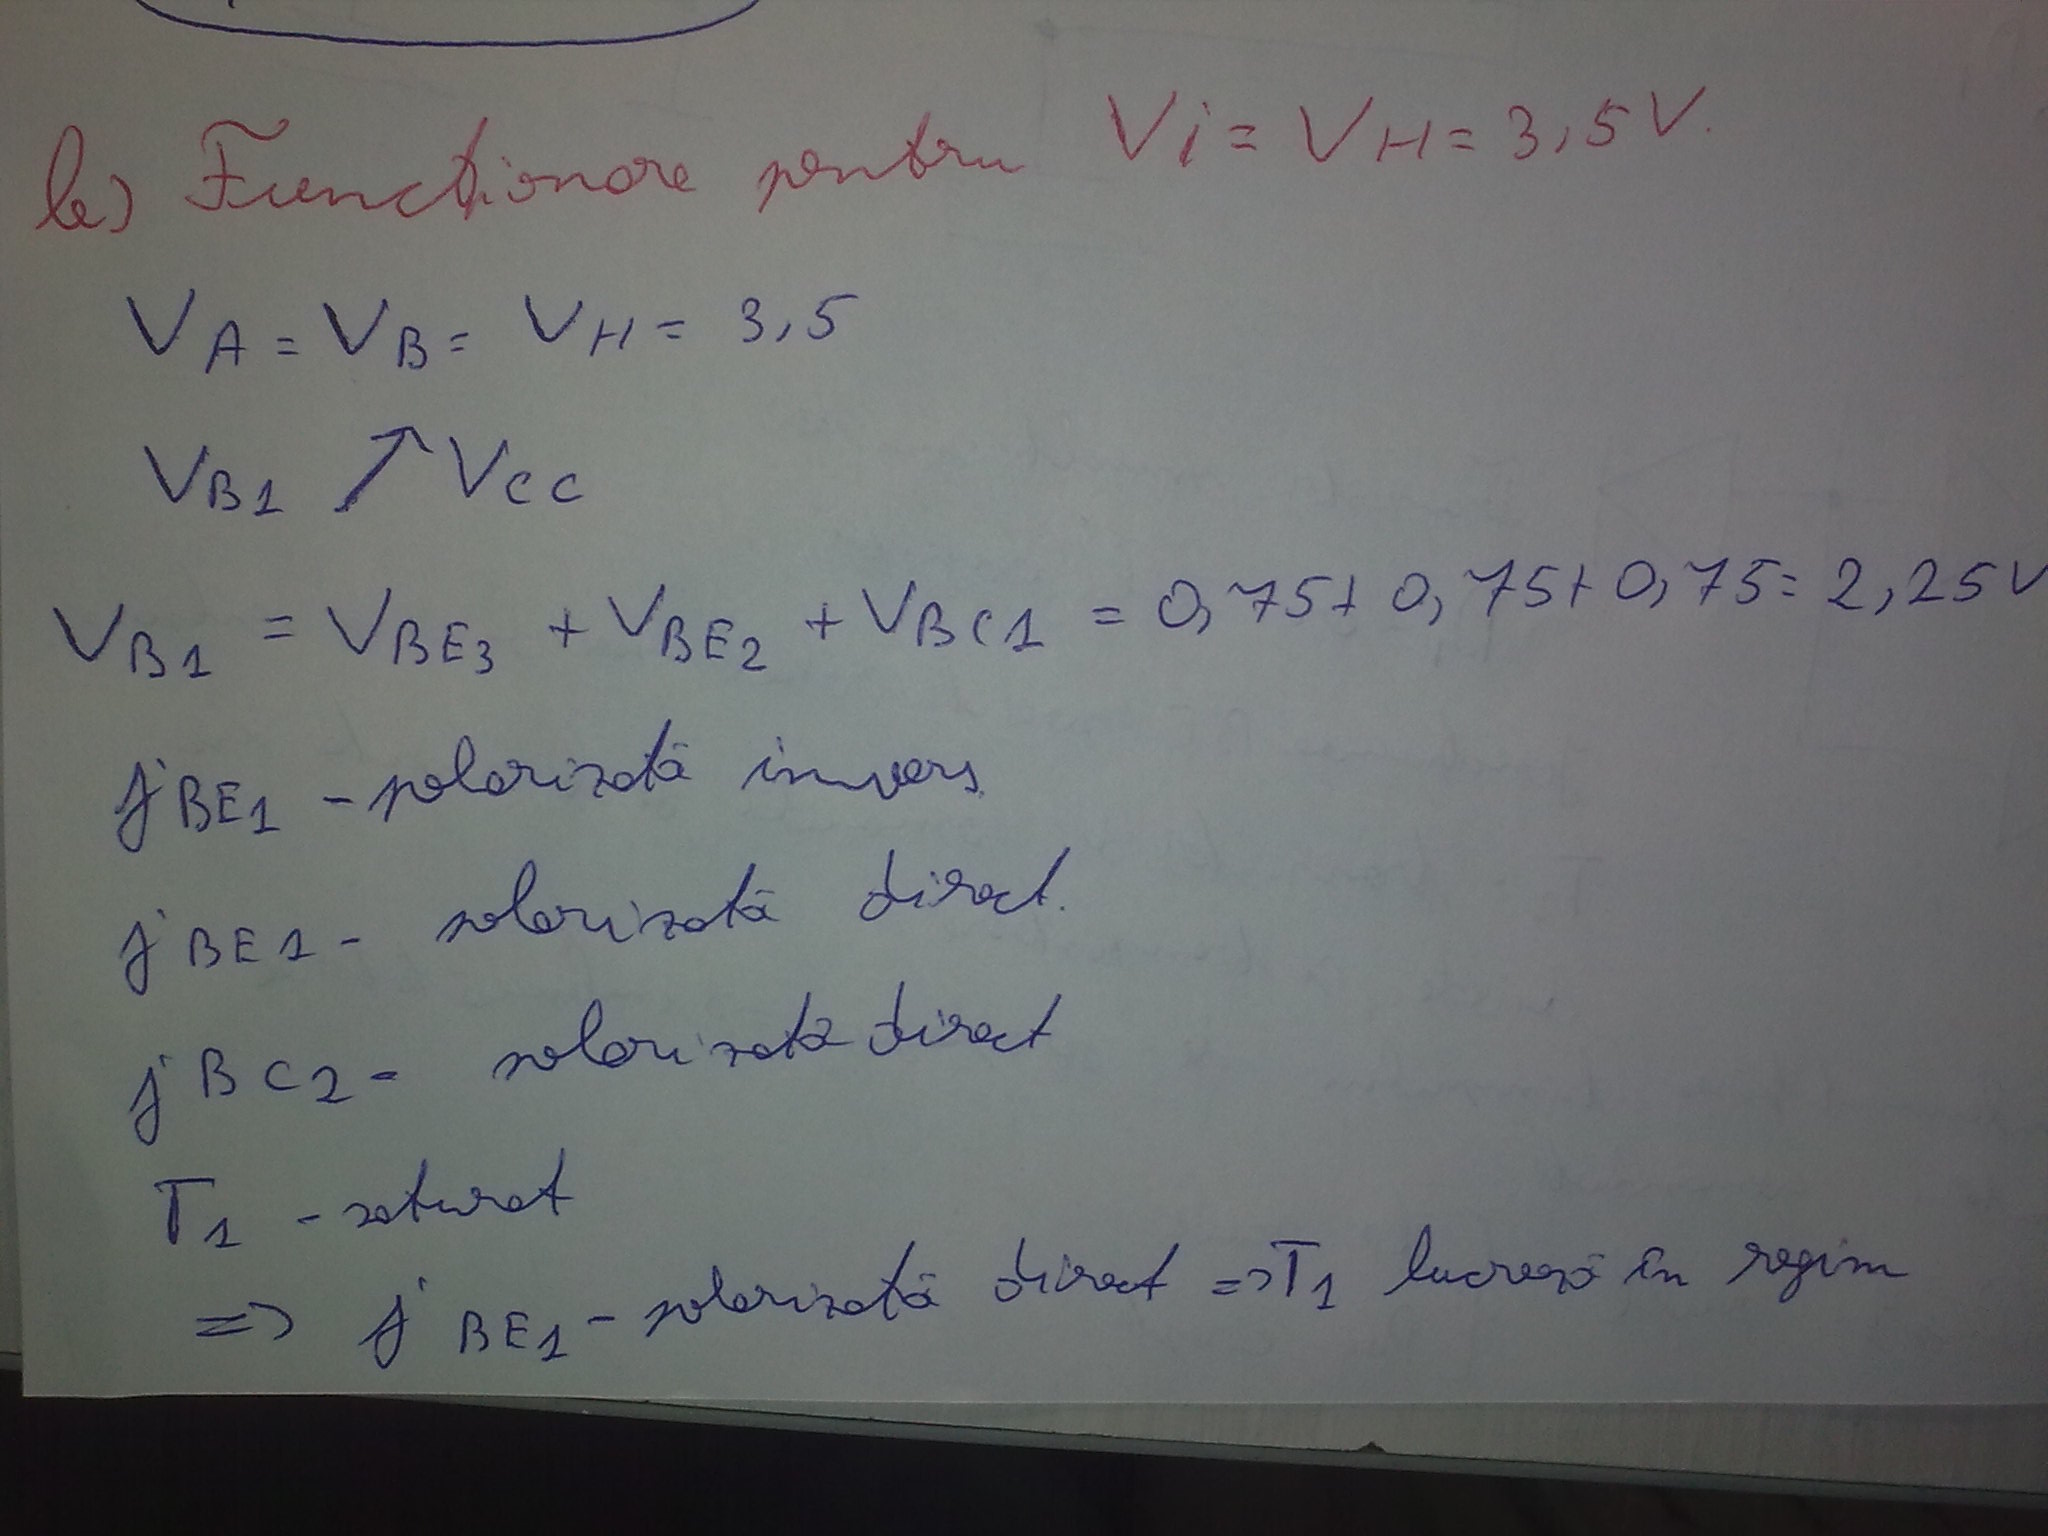 b) Funcționare pentru Vi = VH = 3,5 V.
VA = VB = VH = 3,5
VB1 ↗ VCC
VB1 = VBE3 + VBE2 + VBC1 = 0,75 + 0,75 + 0,75 = 2,25V
jBE1 - polarizată invers
jBE1 - polarizată direct.
jBC2 - polarizată direct
T1 - saturat
=> jBE1 - polarizată direct => T1 lucrează în regim